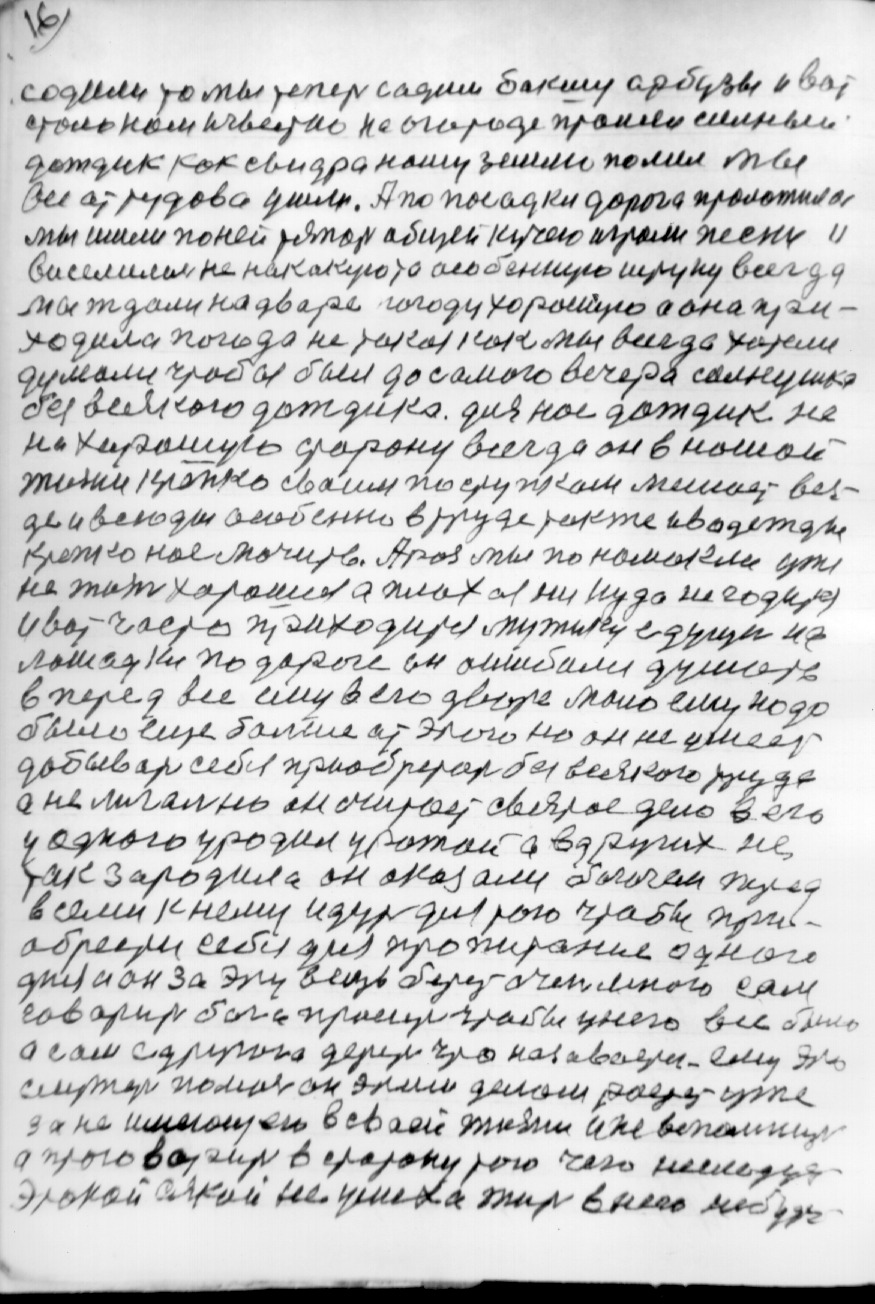 16)
содили то мы тепер садим бакшу арбузы и вот
стало нам ичвестно не огороде прошел силный
дождик как сведра нашу землю полил мы
все аттудова ушли. А по посадки дорога проложилас
мы шли поней тятор общей кучею играли песни и
виселилися не накакуюто особенную штуку всегда
мы ждали надваре погоду хорошую а она при-
ходила погода не такая как мы всегда хотели
думали чтобы был до самого вечера солнушка
без всякого дождика. для нас дождик не
на хорошую старону всегда он в нашай
жизни крепко своим поступкам мешает вез-
де и всюды особенно в труде также и водежды
крепко нас мочить. А раз мы по намокли уже
не жизн хорошая а плохая ни куда не годится
и вот часто приходится мужику едущи на
лошадки по дороге он ошибали думать
в перед все ему в его дворе мало ему надо
было еще болше ат этого но он не умеет
добыват себя приобретат без всякого труда
а не легално он считает святое дело в его
у одного уродил урожай а вдругих не
так зародила он оказали богачем перед
всеми к нему идут для того чтобы при-
обрести себя для пропитание одного
дня а он за эту вещь берет очен много сам
говорит бога просит чтобы унего все было
а сам сдругога дерет что назоваеш. ему это
смертел помоя он этим делам растет уже
за не имеющего в своей жизни и не вспомнит
а проговорит в сторону того чего неследует
Этакой сякой неумеха жит в него небуде